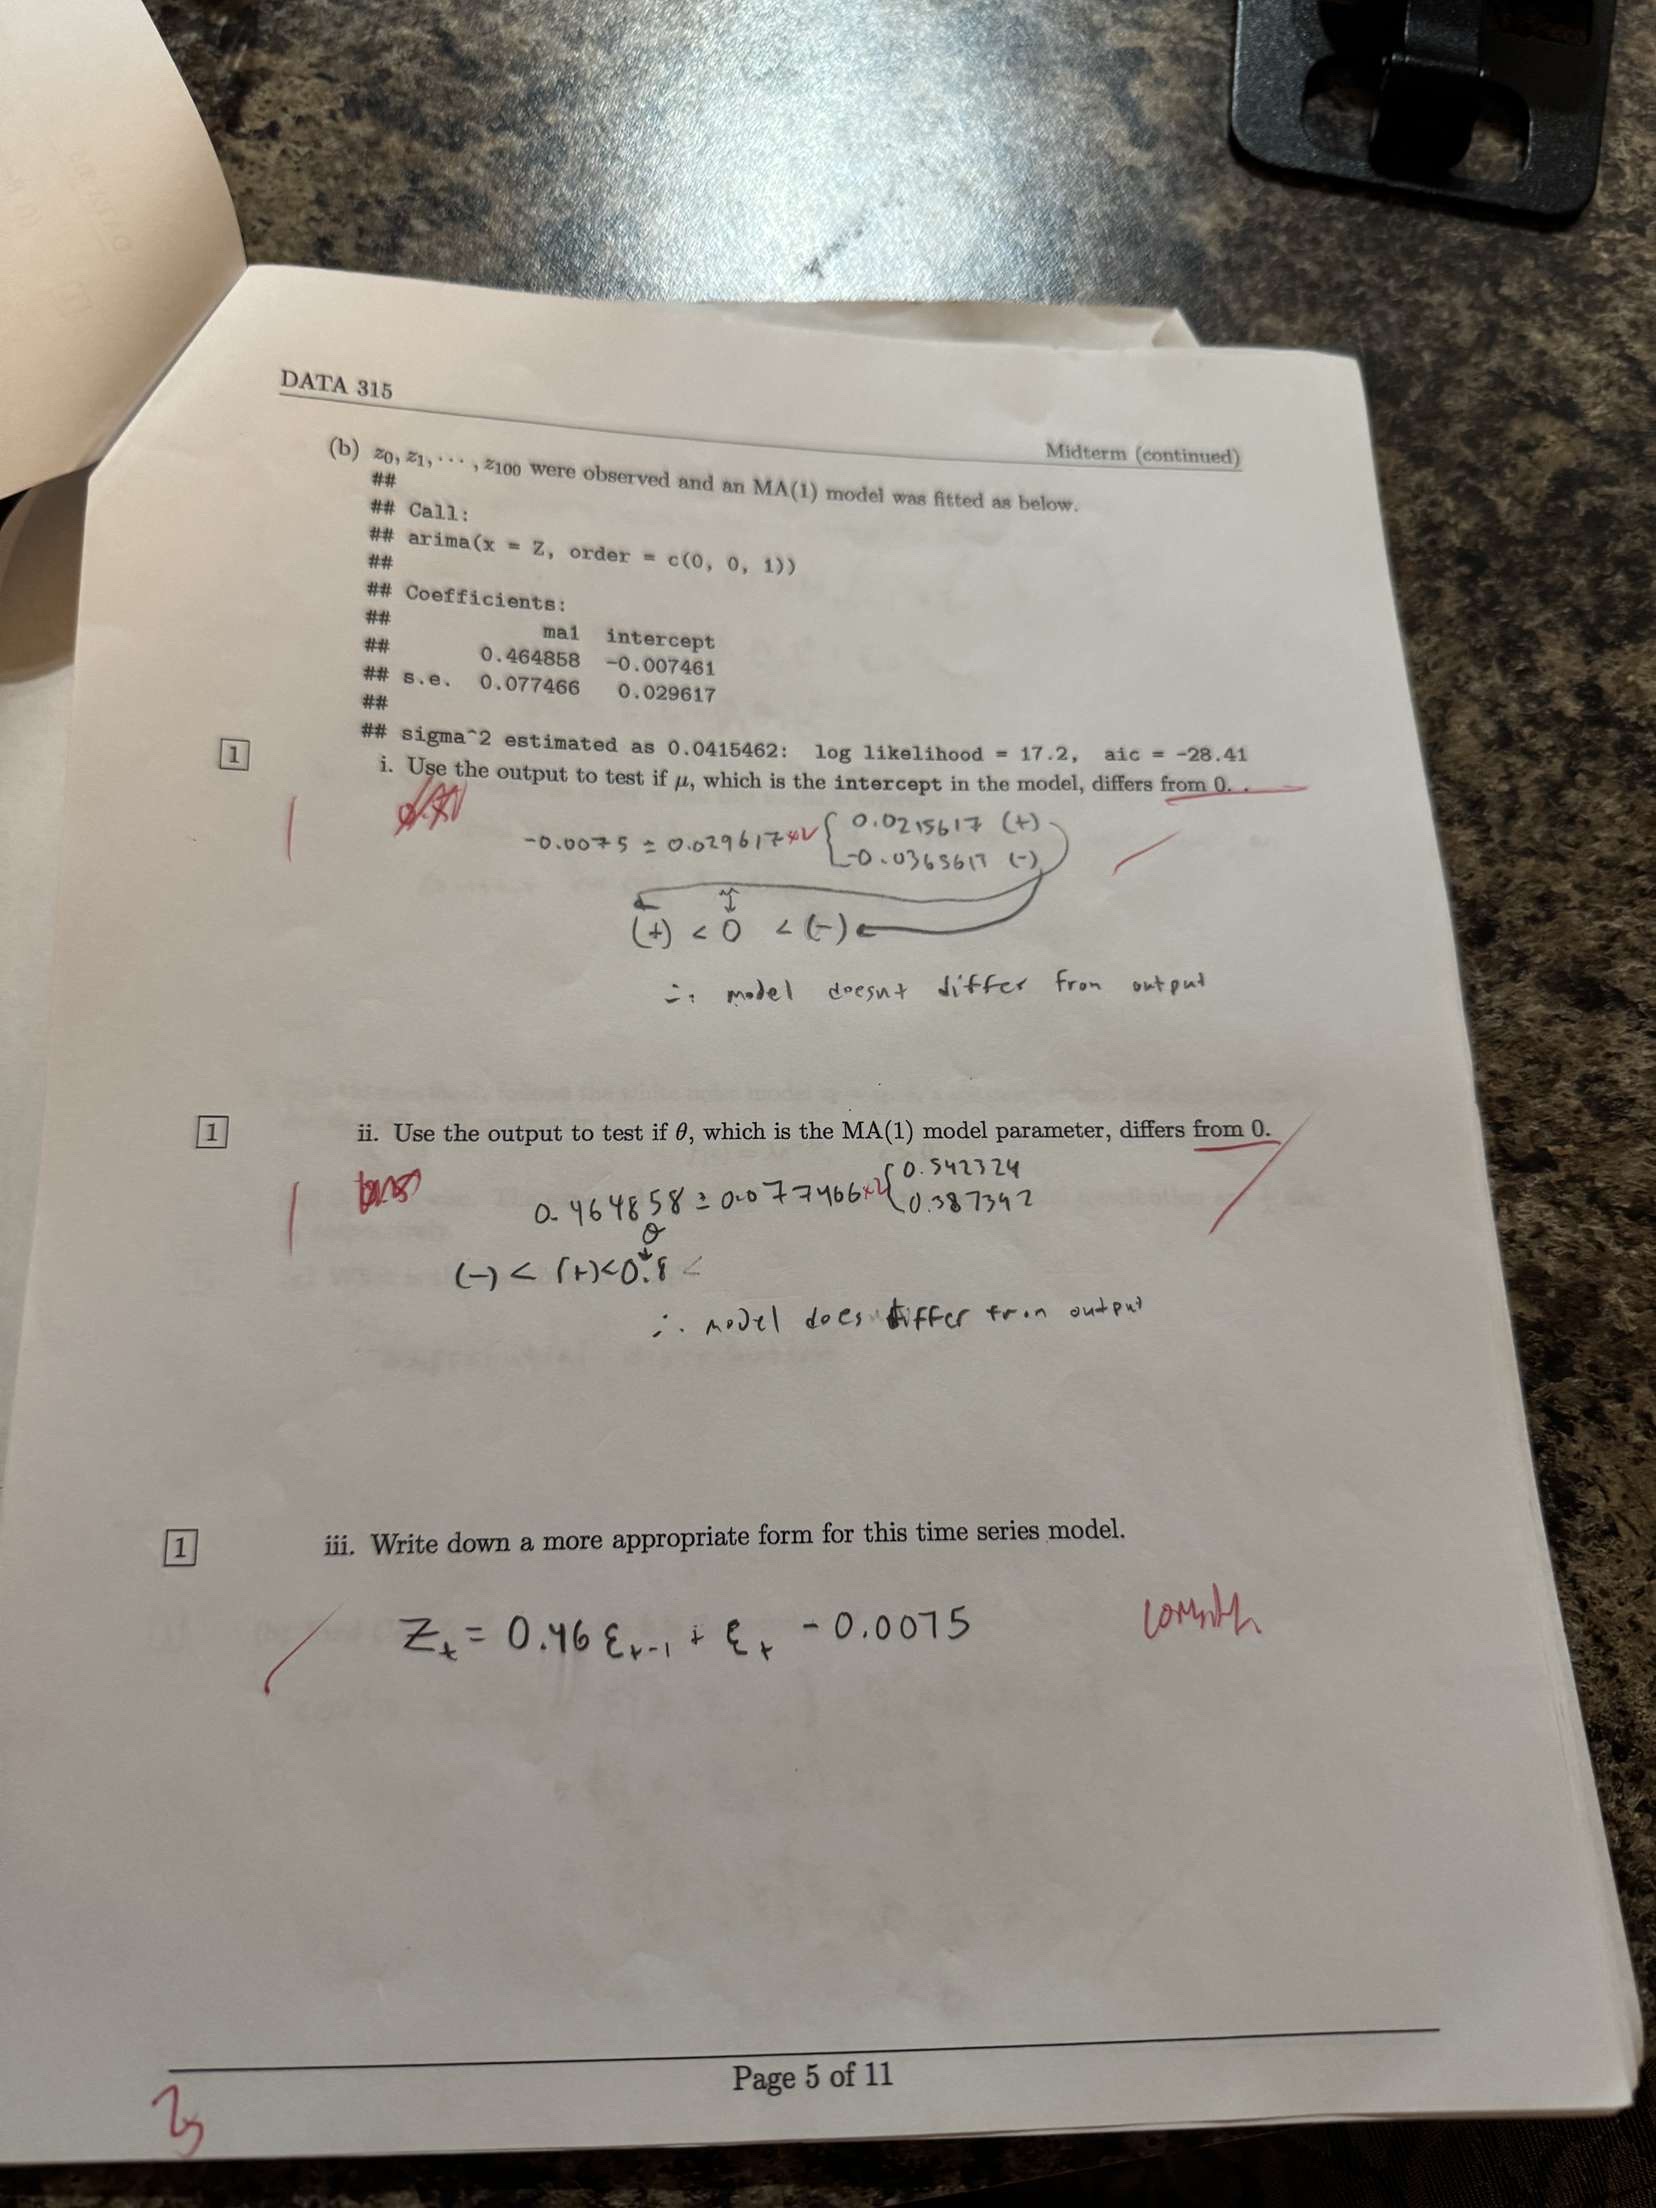 DATA 315
Midterm (continued)
(b) z₀, z₁, ··· , z₁₀₀ were observed and an MA(1) model was fitted as below.
##
## Call:
## arima(x = Z, order = c(0, 0, 1))
##
## Coefficients:
##
ma1 intercept
## 0.464858 -0.007461
## s.e. 0.077466 0.029617
##
## sigma^2 estimated as 0.0415462: log likelihood = 17.2, aic = -28.41
1 i. Use the output to test if μ, which is the intercept in the model, differs from 0.
-0.0075 ± 0.029617 ×2 { 0.0215617 (+)
-0.0365617 (-)
(+) < 0 < (-)
∴ model doesnt differ from output
1 ii. Use the output to test if θ, which is the MA(1) model parameter, differs from 0.
0.464858 ± 0.077466 ×2 { 0.542324
0.387392
θ
(-) < (+) < 0.8 <
∴ model does differ from output
1 iii. Write down a more appropriate form for this time series model.
Zₜ = 0.46 εₜ₋₁ + εₜ - 0.0075
Page 5 of 11